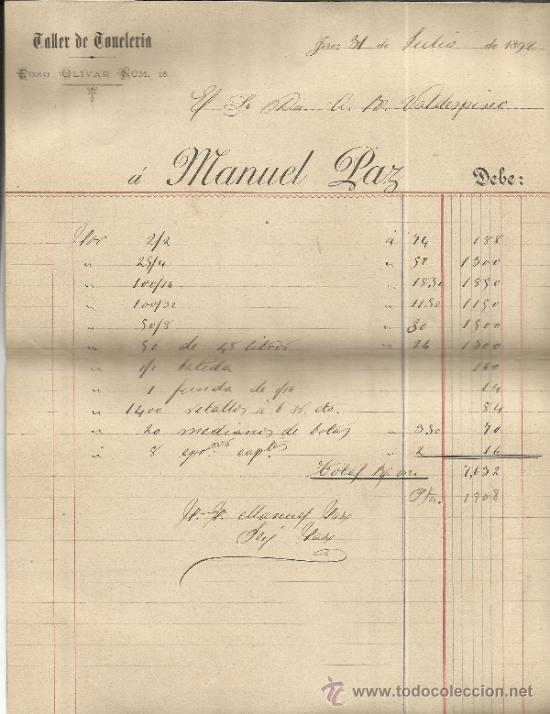 Taller de Tonelería
Pozo Olivar Núm. 16
Jerez 31 de Julio de 189
El Sr Dn. A. R. Valdespino
á Manuel Paz Debe:
Por 2/2 á 94 188
" 25/4 " 52 1300
" 100/16 " 18.50 1850
" 100/32 " 11.50 1150
" 50/8 " 30 1500
" 50 de 48 litros " 26 1300
" batida 160
" 1 funda de 14
" 1400 retallos á 6 rs. cto. 84
" 20 medianos de botas " 3.50 70
" 8 á 2 16
Total Rvn. 7,632
Ptas. 1908
P. P. Manuel Paz
José Paz
todocoleccion
www.todocoleccion.net